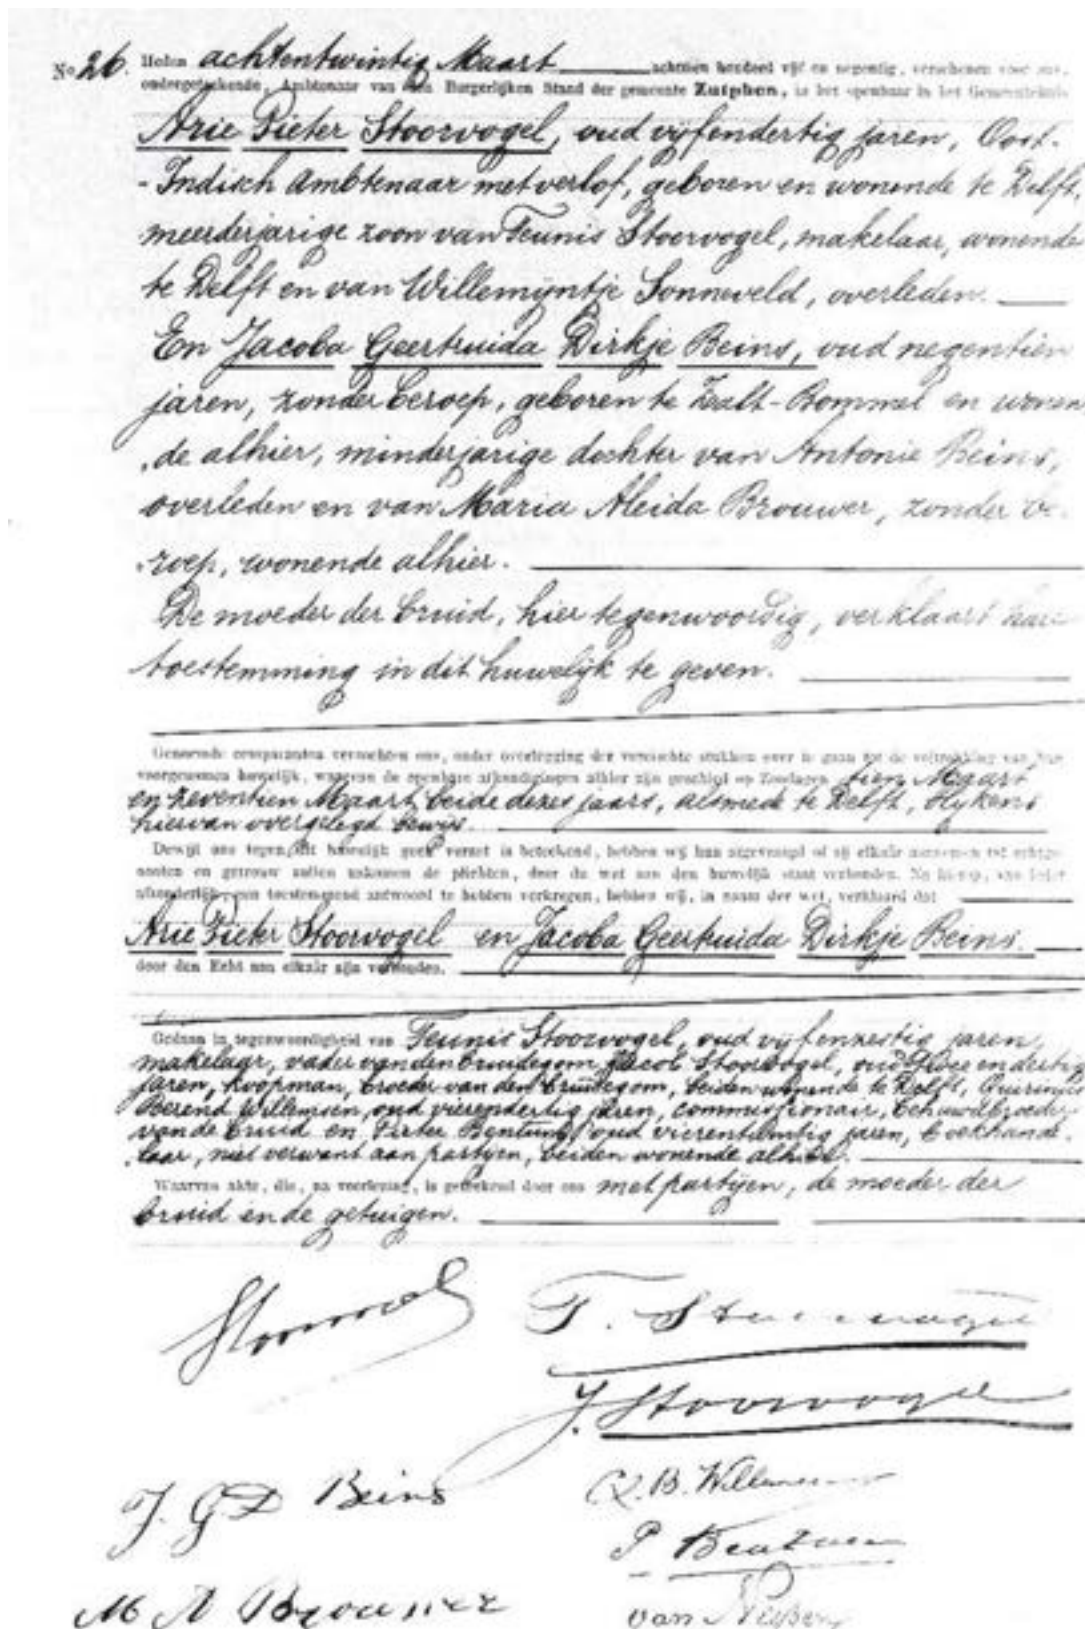 No 26. Heden achtentwintig Maart achttien honderd vijf en negentig, verschenen voor ons,
ondergeteekende, Ambtenaar van den Burgerlijken Stand der gemeente Zutphen, in het openbaar in het Gemeentehuis
Arie Pieter Stoorvogel, oud vijfendertig jaren, Oost-
-Indisch Ambtenaar met verlof, geboren en wonende te Delft,
meerderjarige zoon van Teunis Stoorvogel, makelaar, wonende
te Delft en van Willemijntje Sonneveld, overleden.
En Jacoba Geertruida Dirkje Beins, oud negentien
jaren, zonder beroep, geboren te Zalt-Bommel en wonen
de alhier, minderjarige dochter van Antonie Beins,
overleden en van Maria Aleida Brouwer, zonder be-
roep, wonende alhier.
De moeder der bruid, hier tegenwoordig, verklaart hare
toestemming in dit huwelijk te geven.
Genoemde comparanten verzochten ons, onder overlegging der vereischte stukken over te gaan tot de voltrekking van hun
voorgenomen huwelijk, waarvan de openbare afkondigingen alhier zijn geschied op Zondagen tien Maart
en zeventien Maart, beide dezes jaars, alsmede te Delft, blykens
hiervan overgelegd bewijs.
Dewijl ons tegen dit huwelijk geen verzet is beteekend, hebben wij hun afgevraagd of zij elkair aannemen tot echtge-
nooten en getrouw zullen nakomen de plichten, door de wet aan den huwelijk staat verbonden. Na hierop, van ieder
afzonderlijk, een toestemmend antwoord te hebben verkregen, hebben wij, in naam der wet, verklaard dat
Arie Pieter Stoorvogel en Jacoba Geertruida Dirkje Beins.
door den Echt aan elkair zijn verbonden.
Gedaan in tegenwoordigheid van Teunis Stoorvogel, oud vijfenzestig jaren,
makelaar, vader van den bruidegom, Jacob Stoorvogel, oud twee en dertig
jaren, koopman, broeder van den bruidegom, beiden wonende te Delft, Quirinus
Berend Willemsen, oud vierendertig jaren, commissionair, behuwdbroeder
van de bruid en Pieter oud vierentwintig jaren, boekhande-
laar, niet verwant aan partijen, beiden wonende alhier.
Waarvan akte, die, na voorlezing, is geteekend door ons met partijen, de moeder der
bruid en de getuigen.
Stoorvogel
T. Stoorvogel
J. Stoorvogel
J. G. D Beins
Q. B. Willemsen
P
M A Brouwer
van